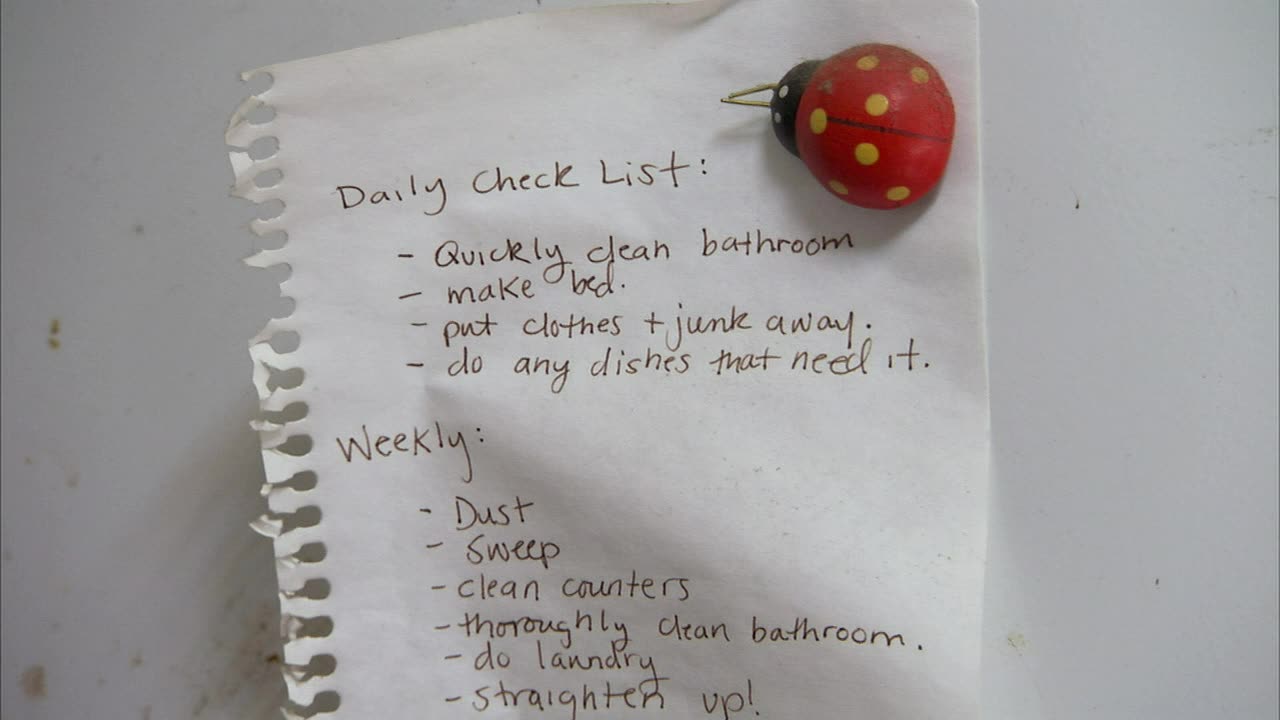 Daily Check List:
- Quickly clean bathroom
- make bed.
- put clothes + junk away.
- do any dishes that need it.
Weekly:
- Dust
- Sweep
- clean counters
- thoroughly clean bathroom.
- do laundry
- straighten up!